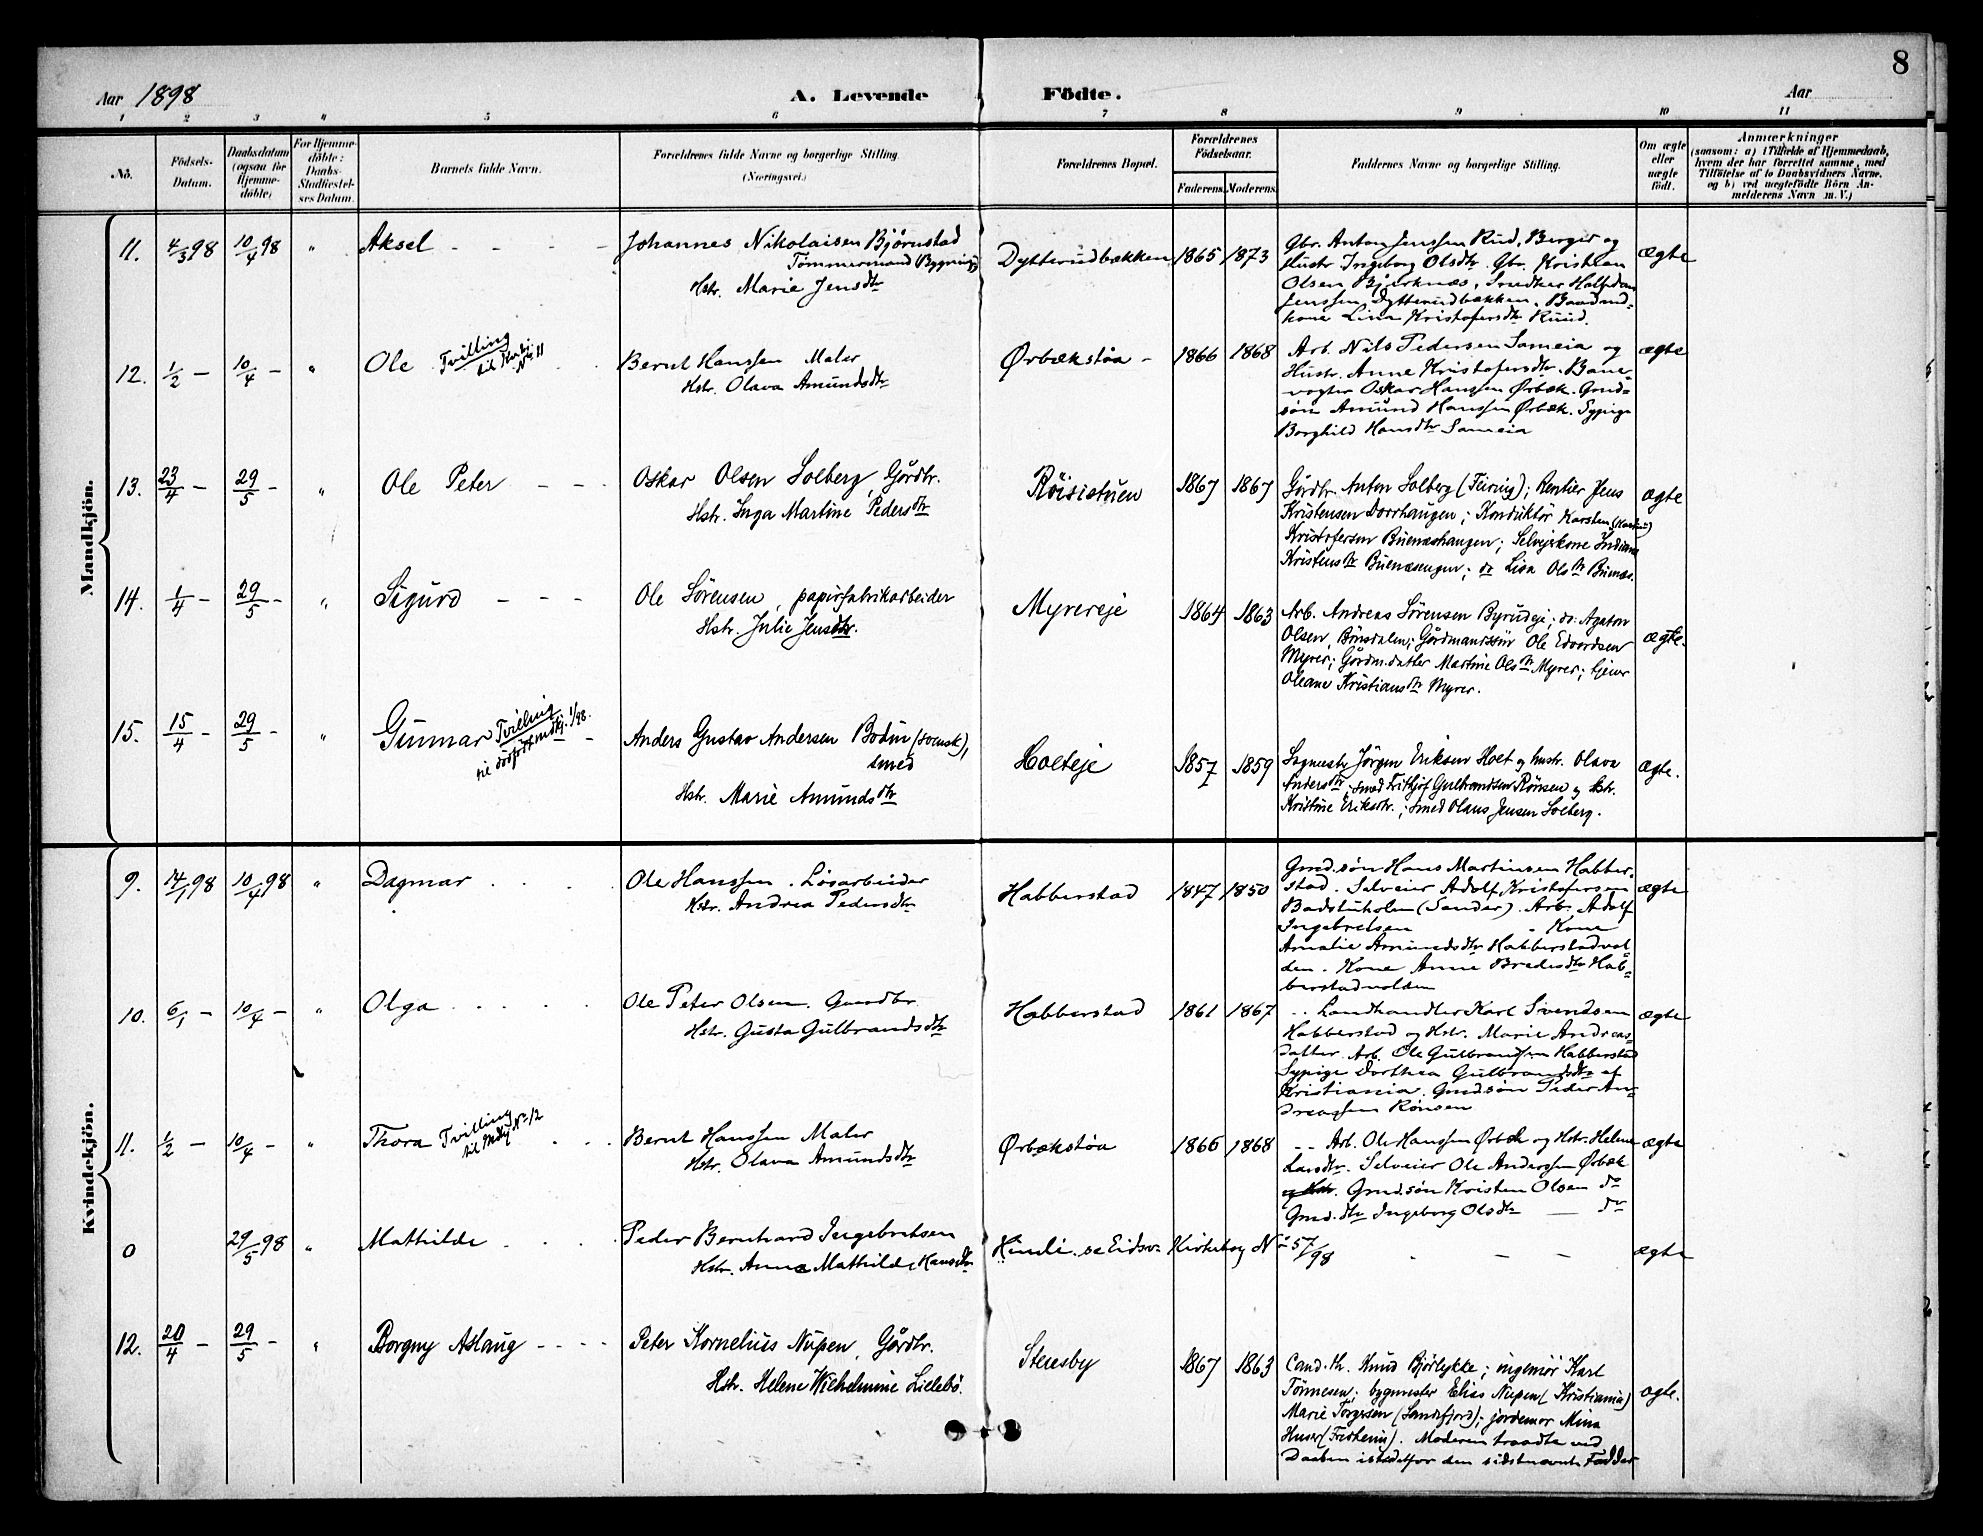 8
Aar 1898
A. Levende Födte.
Aar
1 2 3 4 5 6 7 8 9 10 11
No.
Födsels-Datum.
Daabsdatum (ogsaa for Hjemmedöbte)
For Hjemmedöbte: Daabs-Stadfæstelses Datum.
Barnets fulde Navn.
Forældrenes fulde Navne og borgerlige Stilling (Næringsvei.)
Forældrenes Bopæl.
Forældrenes Födselsaar.
Faderens. Moderens.
Faddernes Navne og borgerlige Stilling.
Om ægte eller uægte födt.
Anmærkninger
(saasom: a) i Tilfælde af Hjemmedaab,
hvem der har forrettet samme, med
Tilföielse af to Daabsvidners Navne.
og b) ved uægtefödte Börn Anmelderens
Navn m. V.)
Mandkjön.
11. 4/3 98 10/4 98 " Aksel - - - -
Johannes Nikolaisen Bjørnstad
Tømmermand
Hstr. Marie Jensdtr
Dytterudbækken 1865 1873
Gbr. Anton Jenssen Rud, Berger og
Hustr. Ingeborg Olsdtr. Gbr. Kristian
Olsen Bjerknæs. Snedker Halfdan
Jenssen, Dytterudbækken.
kone Lina Kristofersdtr Ruud.
ægte
12. 1/2 - 10/4 - " Ole Tvilling til Kvdkj. No 11
Bernt Hanssen Maler
Hstr. Olava Amundsdtr
Ørbækstøa - 1866 1868
Arb. Nils Pedersen Sameia og
Hustr. Anne Kristofersdtr. Bane-
vogter Oskar Hanssen Ørbæk. Grmd-
søn Amund Hanssen Ørbæk. Sypige
Borghild Hansdtr Sameia
ægte
13. 23/4 - 29/5 - " Ole Peter - - -
Oskar Olsen Solberg, Gårdbr.
Hstr. Inga Martine Pedersdtr
Röisistuen 1867 1867
Gårdbr. Anton Solberg (Furing); Rentier Jens
Kristensen Dorrhaugen; Konduktör Karsten
Kristofersen Buenæshaugen; Selvejerkone Indiana
Kristensdtr Buenæsengen; do Lisa Olsdtr Buenæs.
ægte
14. 1/4 - 29/5 - " Sigurd - - -
Ole Sörensen, papirfabrikarbeider
Hstr. Julie Jensdtr.
Myrereje 1864 1863
Arb. Andreas Sörensen Byrudeje; do. Agaton
Olsen, Bönsdalen; Gårdmandssön Ole Edvardsen
Myrer; Gårdm.datter Martine Olsdtr Myrer; tjener
Oleane Kristiansdtr Myrer.
ægte.
15. 15/4 - 29/5 - " Gunnar Tvilling til dödfödt mdkj. 1/98. -
Anders Gustav Andersen Bodin (svensk),
smed
Hstr. Marie Amundsdtr
Holteje 1857 1859
Jörgen Eriksen Holt og hustr. Olava
Andersdtr; smed Fritjof Gulbrandsen Rönsen og hstr.
Kristine Eriksdtr.; smed Olaus Jensen Solberg.
ægte.
Kvindekjön.
9. 14/1 98 10/4 98 " Dagmar . . . .
Ole Hanssen. Løsarbeider
Hstr. Andrea Pedersdtr
Habberstad 1847 1850
Grmd.søn Hans Martinsen Habber-
stad. Selveier Adolf Kristofersen
Badstuholen (Sander). Arb. Adolf
Ingebretsen " Kone
Amalie Amundsdtr Habberstadvol-
den. Kone Anne Bredesdtr Hab-
berstadvolden
ægte
10. 6/1 - 10/4 - " Olga . . . .
Ole Peter Olsen. Gaardbr.
Hstr. Gusta Gulbrandsdtr
Habberstad 1861 1867
.. Landhandler Karl Svendsen
Habberstad og Hstr. Marie Andreas-
datter. Arb. Ole Gulbrandsen Habberstad
Sypige Dorthea Gulbrandsdtr af
Kristiania. Grmd.søn Peder An-
dreassen Rønsen
ægte
11. 1/2 - 10/4 - " Thora Tvilling til Mdkj No 12 . .
Bernt Hanssen Maler
Hstr. Olava Amundsdtr
Ørbækstøa 1866 1868
-- Arb. Ole Hanssen Ørbæk og Hstr. Helene
Larsdtr. Selveier Ole Anderssen Ørbæk
og Hstr. Grmd.søn Kristen Olsen do
Grmd.dtr Ingeborg Olsdtr — do
ægte
0 29/5 98 " Mathilde . . . .
Peder Bernhard Ingebretsen
Hstr. Anne Mathilde Hansdtr
se Eidsv. Kirkebog No 57/98 - - -
ægte
12. 20/4 - 29/5 - " Borgny Aslaug - - - -
Peter Kornelius Nupen, Gårdbr.
Hstr. Helene Wilhelmine Lillebö.
Stensby 1867 1863
Cand. th. Knud Bjørlykke; ingeniör Karl
Tönnesen; bygmester Elias Nupen (Kristiania)
Marie Torgersen (Sandefjord); jordemor Mina
Huser (Fredheim). Moderen traadte ved
Daaben istedetfor den sidstnævnte Fadder
ægte.